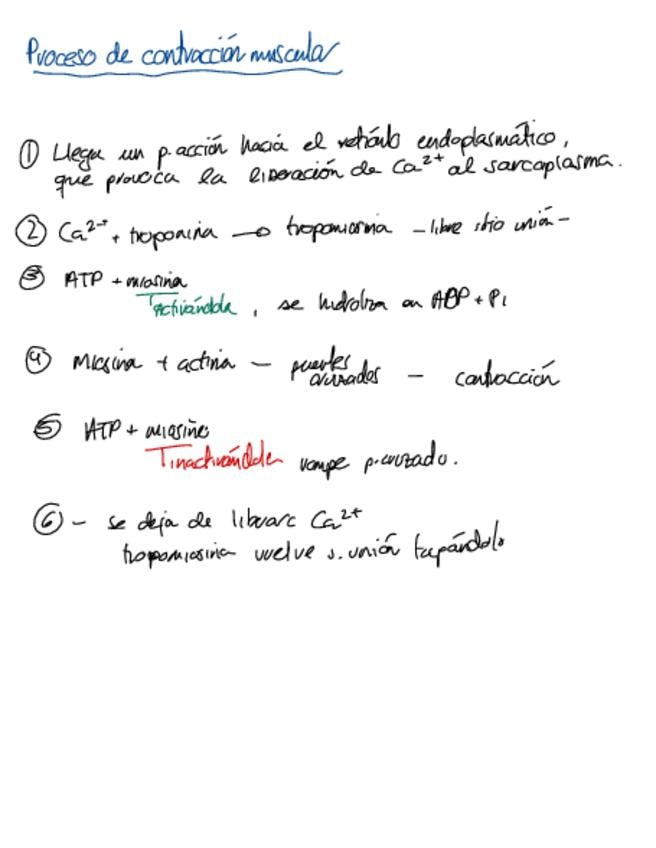 Proceso de contracción muscular
① Llega un p. acción hacia el retículo endoplasmático,
que provoca la liberación de Ca²⁺ al sarcoplasma.
② Ca²⁺ + troponina → tropomiosina - libre sitio unión -
③ ATP + miosina
activándola, se hidroliza en ADP + Pi
④ Miosina + actina - puentes cruzados - contracción
⑤ ATP + miosina
inactivándola rompe p. cruzado.
⑥ - se deja de liberar Ca²⁺
tropomiosina vuelve s. unión tapándolo